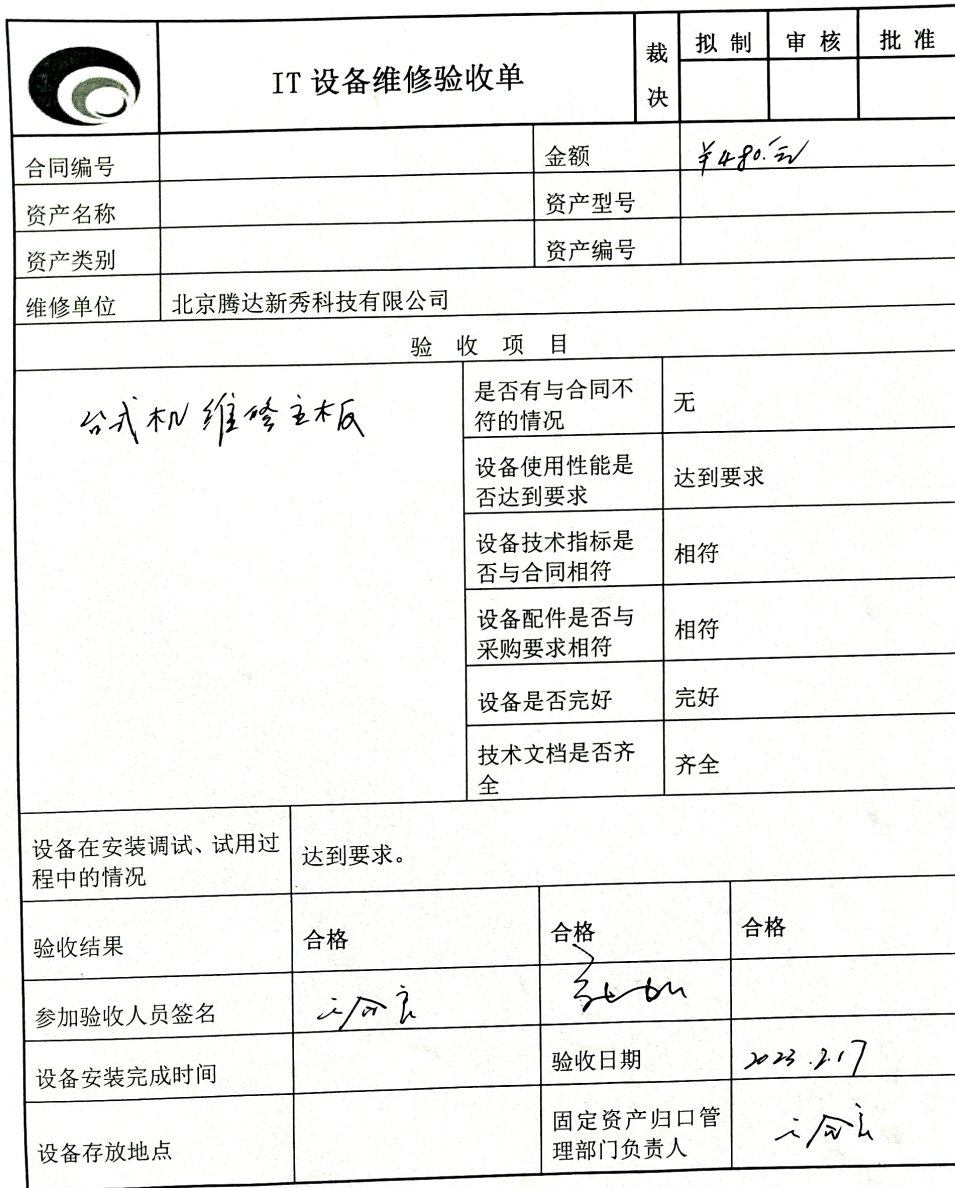 IT 设备维修验收单
裁决
拟 制
审 核
批 准
合同编号
金额
¥480.元
资产名称
资产型号
资产类别
资产编号
维修单位
北京腾达新秀科技有限公司
验 收 项 目
台式机维修主板
是否有与合同不
符的情况
无
设备使用性能是
否达到要求
达到要求
设备技术指标是
否与合同相符
相符
设备配件是否与
采购要求相符
相符
设备是否完好
完好
技术文档是否齐
全
齐全
设备在安装调试、试用过
程中的情况
达到要求。
验收结果
合格
合格
合格
参加验收人员签名
设备安装完成时间
验收日期
2023.2.17
设备存放地点
固定资产归口管
理部门负责人